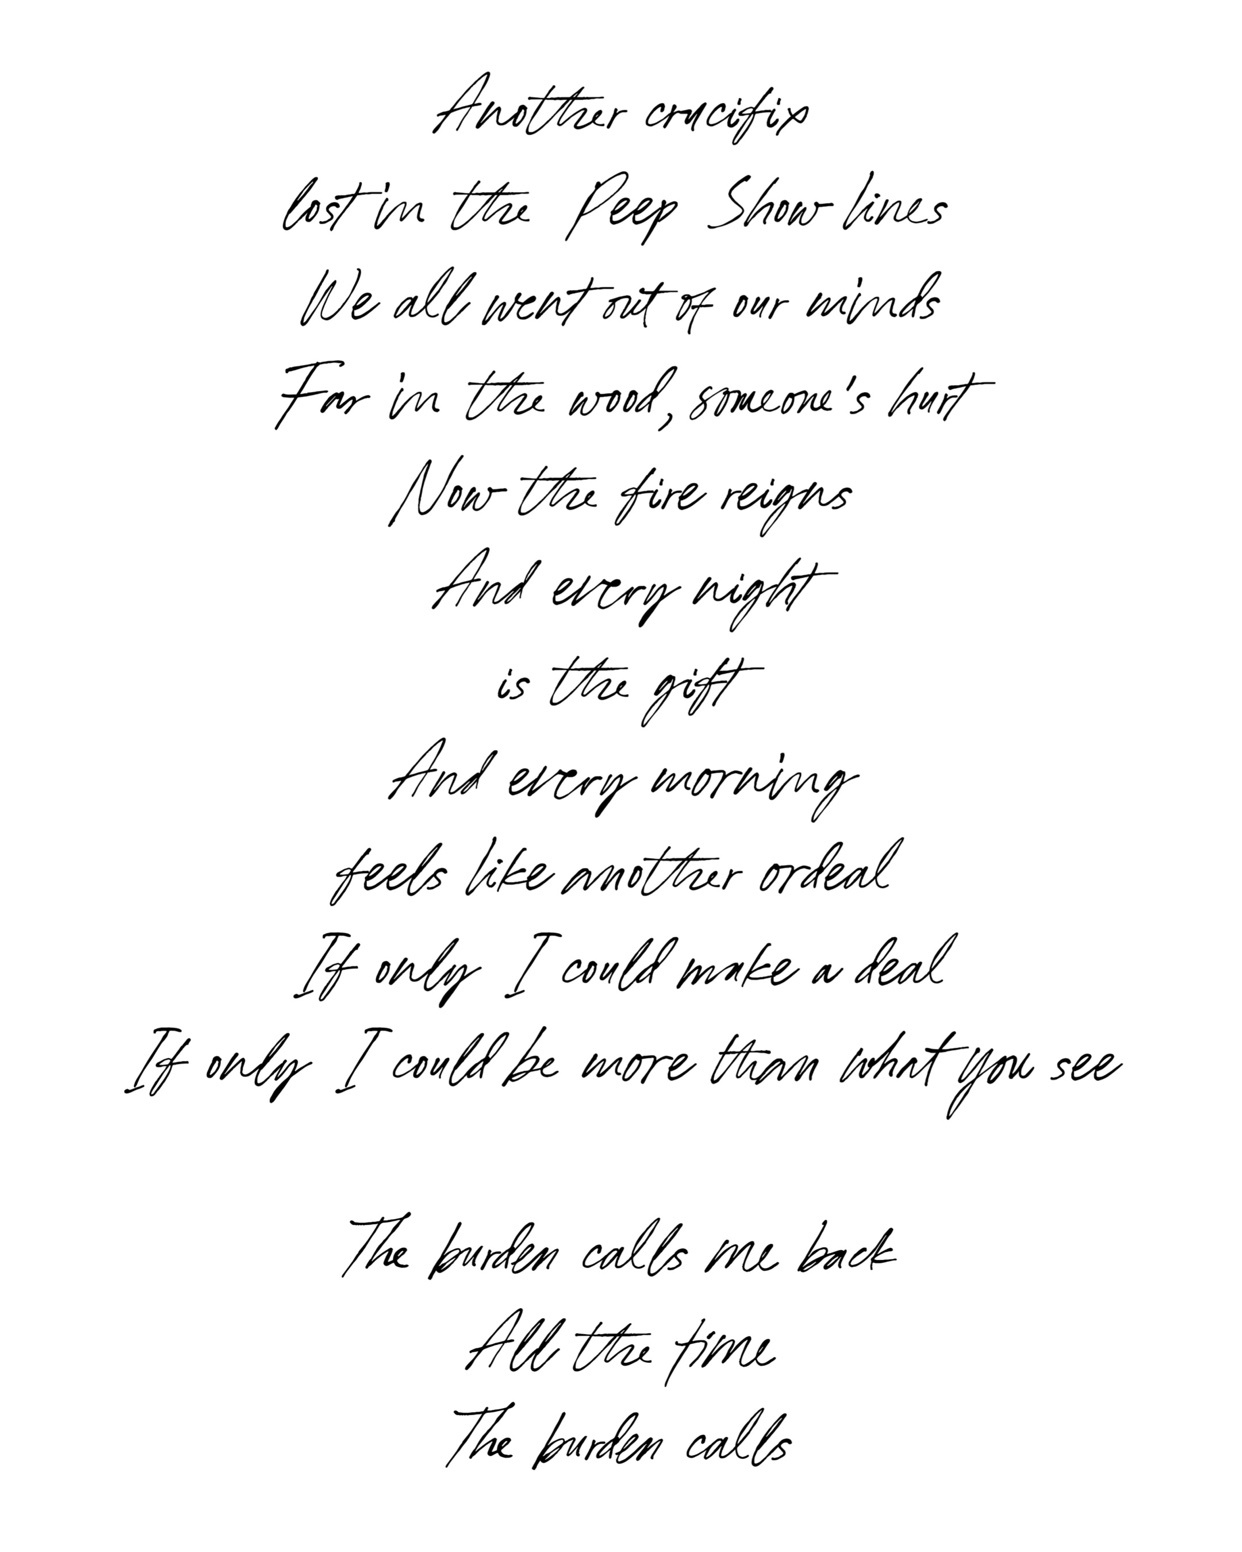 Another crucifix
lost in the Peep Show lines
We all went out of our minds
Far in the wood, someone's hurt
Now the fire reigns
And every night
is the gift
And every morning
feels like another ordeal
If only I could make a deal
If only I could be more than what you see
The burden calls me back
All the time
The burden calls